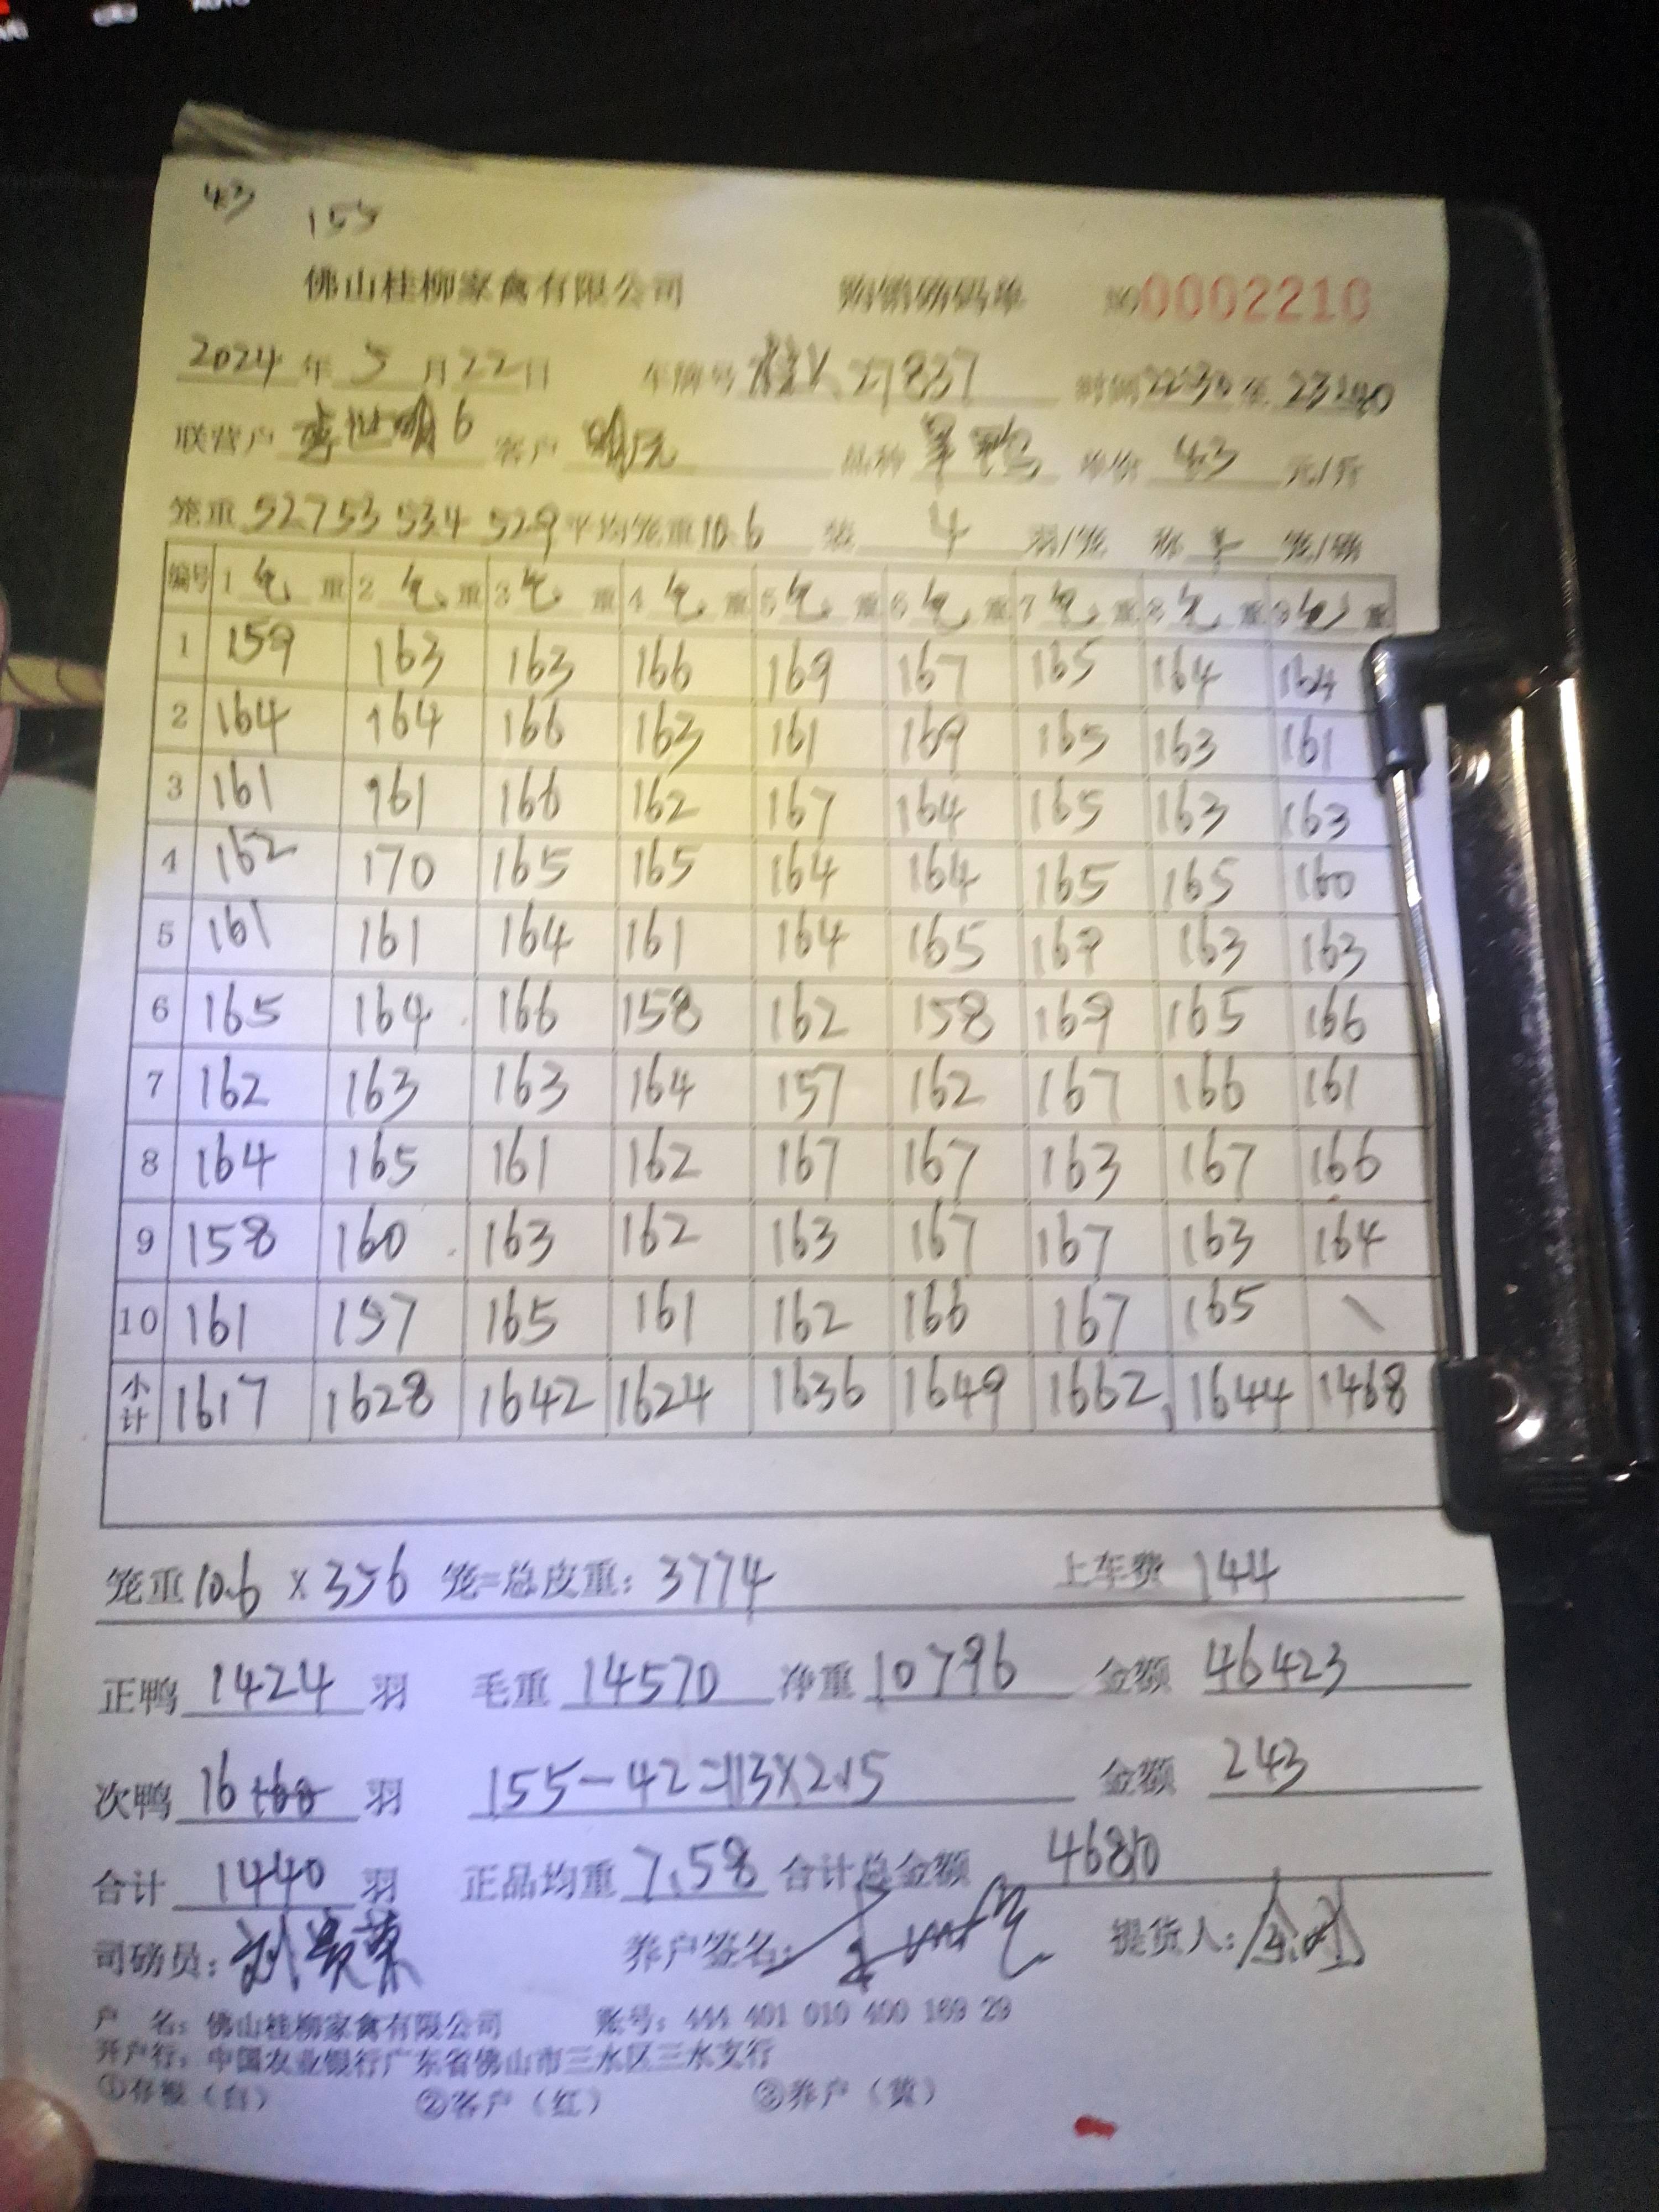 43 155
佛山桂柳家禽有限公司 购销磅码单 №0002210
2024年5月22日 车牌号桂V.27837 时间22:30至23:40
联营户 6 客户 品种 单价43元/斤
笼重527 53 534 529平均笼重10.6 装4羽/笼 称4笼/磅
编号 1毛重 2毛重 3毛重 4毛重 5毛重 6毛重 7毛重 8毛重 9毛重
1 159 163 163 166 169 167 165 164 164
2 164 164 166 163 161 169 165 163 161
3 161 161 166 162 167 164 165 163 163
4 162 170 165 165 164 164 165 165 160
5 161 161 164 161 164 165 169 163 163
6 165 164 166 158 162 158 169 165 166
7 162 163 163 164 157 162 167 166 161
8 164 165 161 162 167 167 163 167 166
9 158 160 163 162 163 167 167 163 164
10 161 157 165 161 162 166 167 165 \
小计 1617 1628 1642 1624 1636 1649 1662 1644 1468
笼重10.6×356笼=总皮重：3774 上车费144
正鸭1424羽 毛重14570 净重10796 金额46423
次鸭16羽 155-42=113×2.15 金额243
合计1440羽 正品均重7.58 合计总金额46810
司磅员： 养户签名： 提货人：
户 名：佛山桂柳家禽有限公司 账号：444 401 010 400 169 29
开户行：中国农业银行广东省佛山市三水区三水支行
①存根（白） ②客户（红） ③养户（黄）